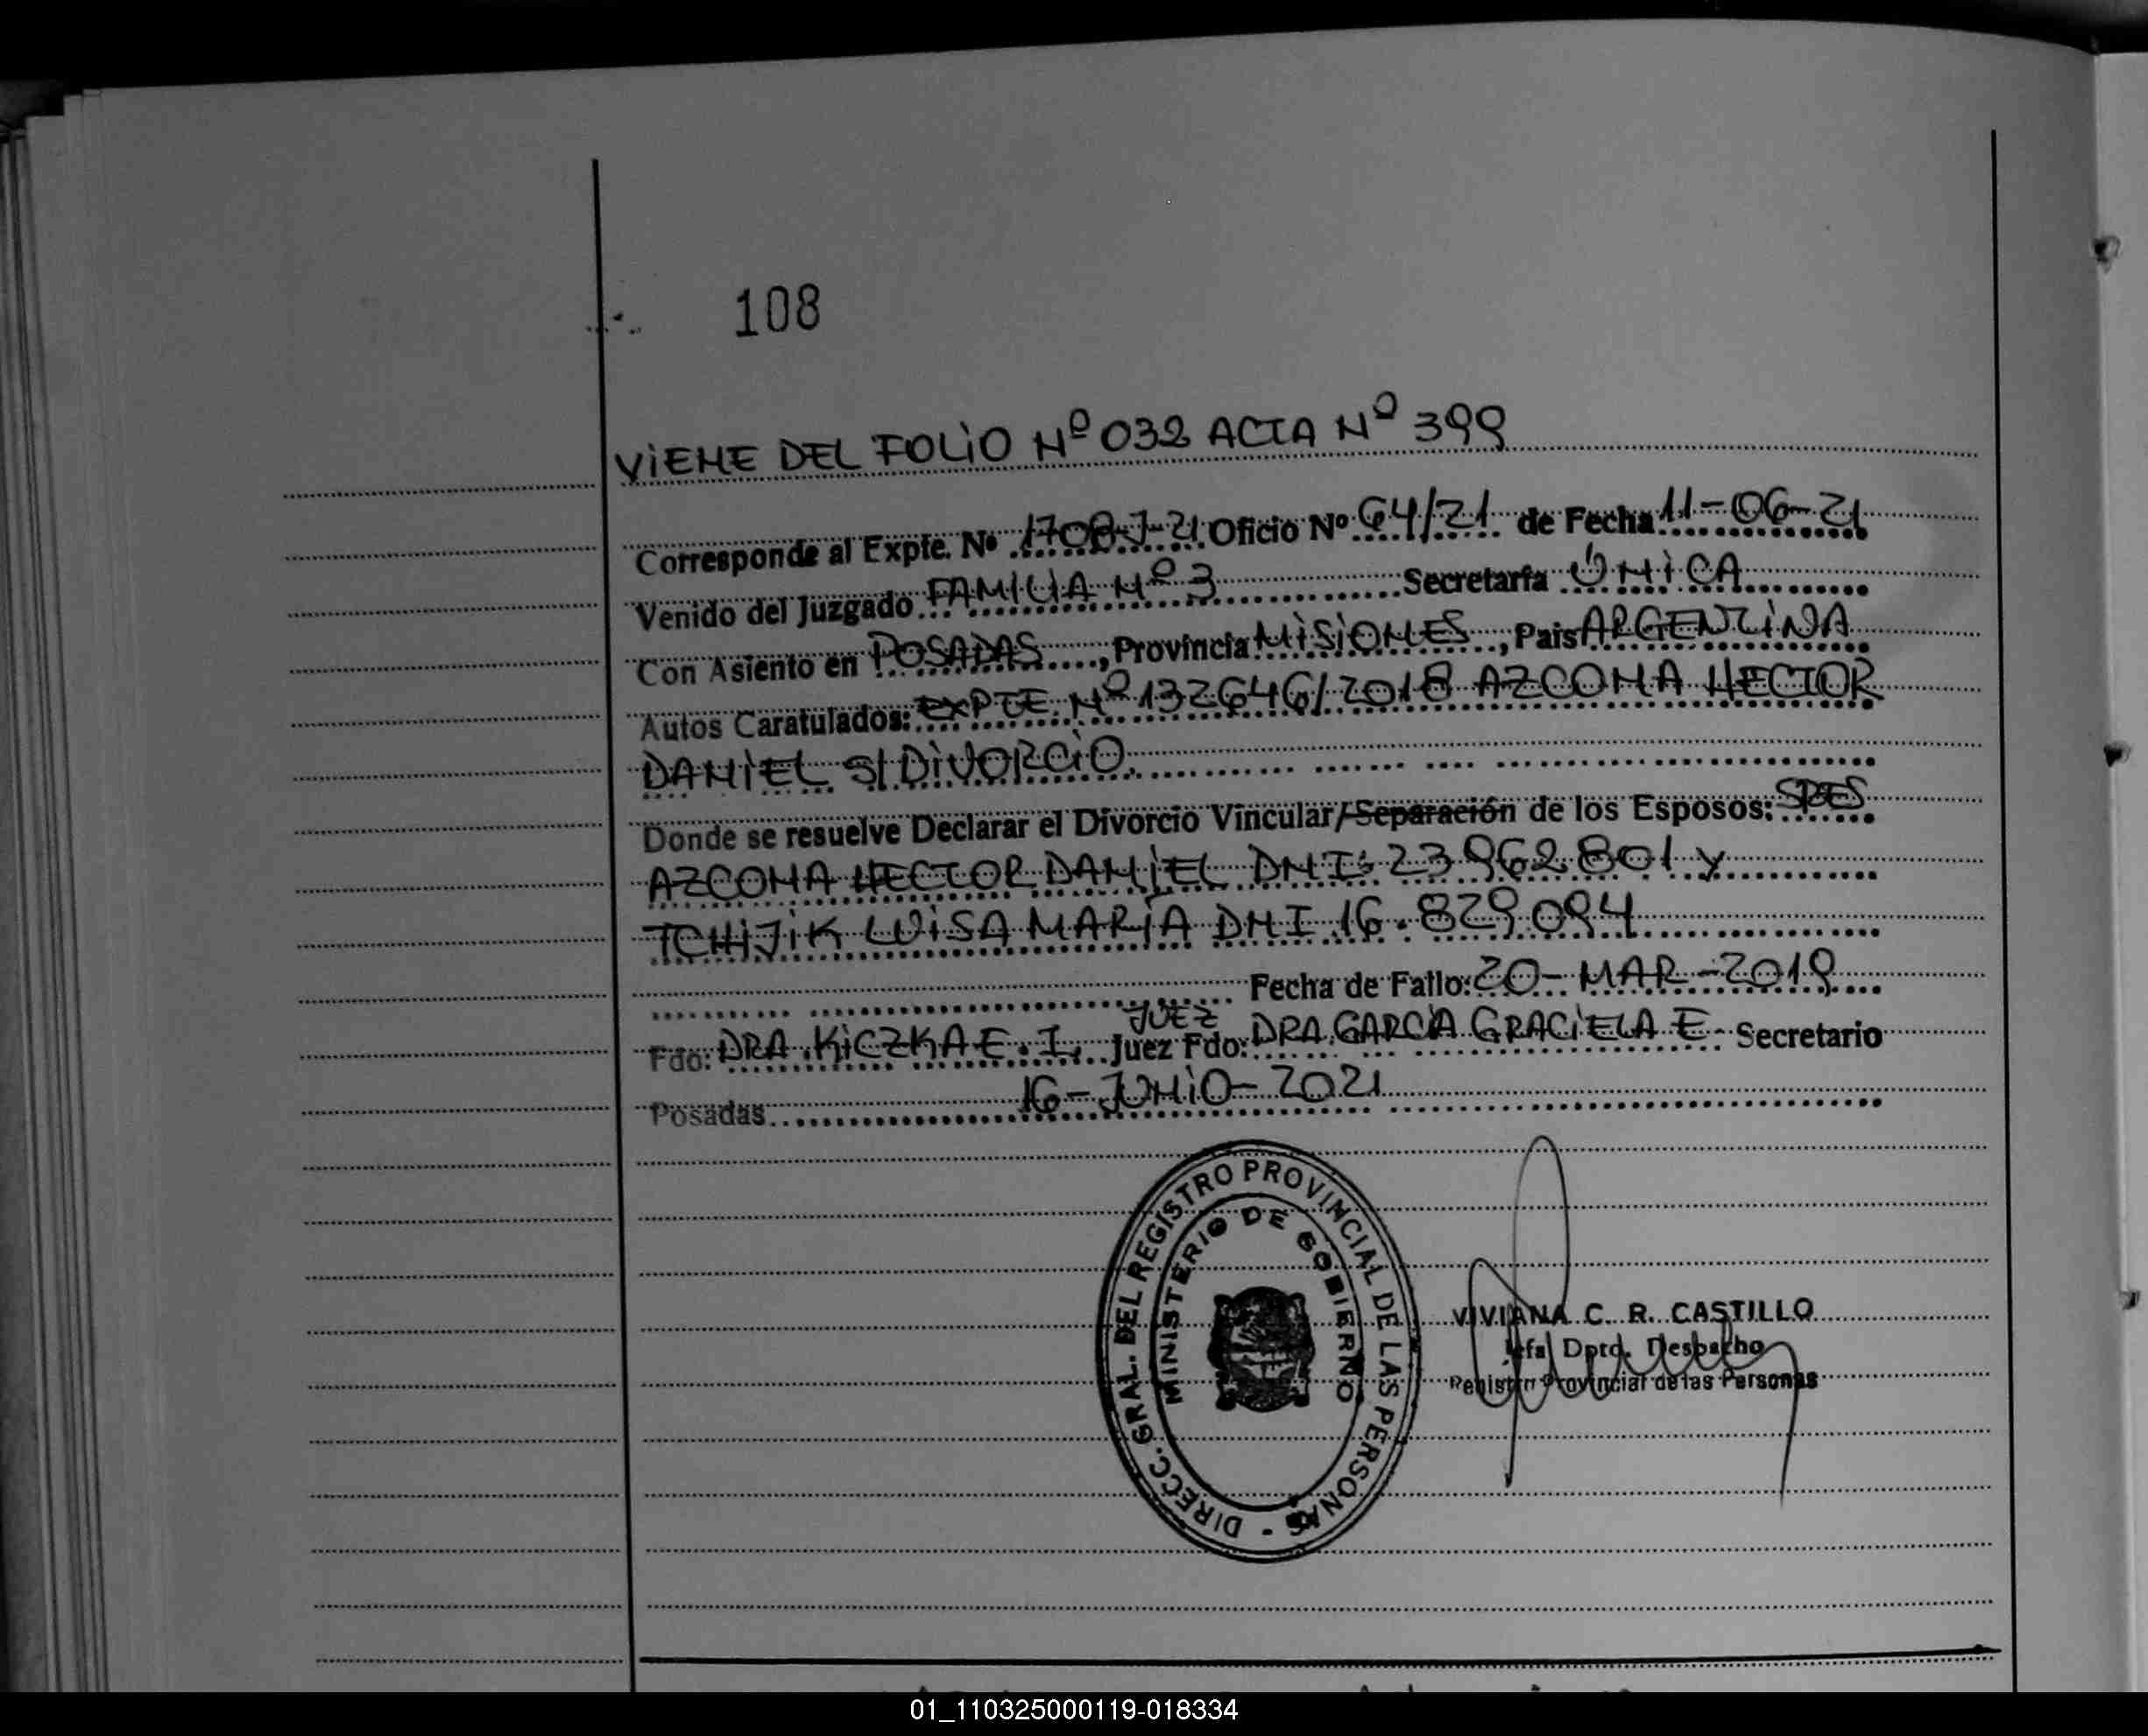 108
VIENE DEL FOLIO Nº 032 ACTA Nº 399
Corresponde al Expte. Nº 1708-J-21 Oficio Nº 64/21 de Fecha 11-06-21
Venido del Juzgado FAMILIA Nº 3 Secretaría ÚNICA
Con Asiento en POSADAS, Provincia MISIONES, Pais ARGENTINA
Autos Caratulados: EXPTE. Nº 132646/2018 AZCONA HECTOR
DANIEL S/DIVORCIO.
Donde se resuelve Declarar el Divorcio Vincular/Separación de los Esposos: SRES
AZCONA HECTOR DANIEL DNI: 23.962.801 y
TCHIJIK LUISA MARÍA DNI 16.829.094
Fecha de Fallo: 20-MAR-2019
JUEZ
Fdo: DRA. KICZKA E. I. Juez Fdo: DRA. GARCÍA GRACIELA E. Secretario
Posadas 16-JUNIO-2021
DIRECC. GRAL. DEL REGISTRO PROVINCIAL DE LAS PERSONAS -
MINISTERIO DE GOBIERNO
VIVIANA C. R. CASTILLO
Jefa Dpto. Despacho
Registro Provincial de las Personas
01_110325000119-018334